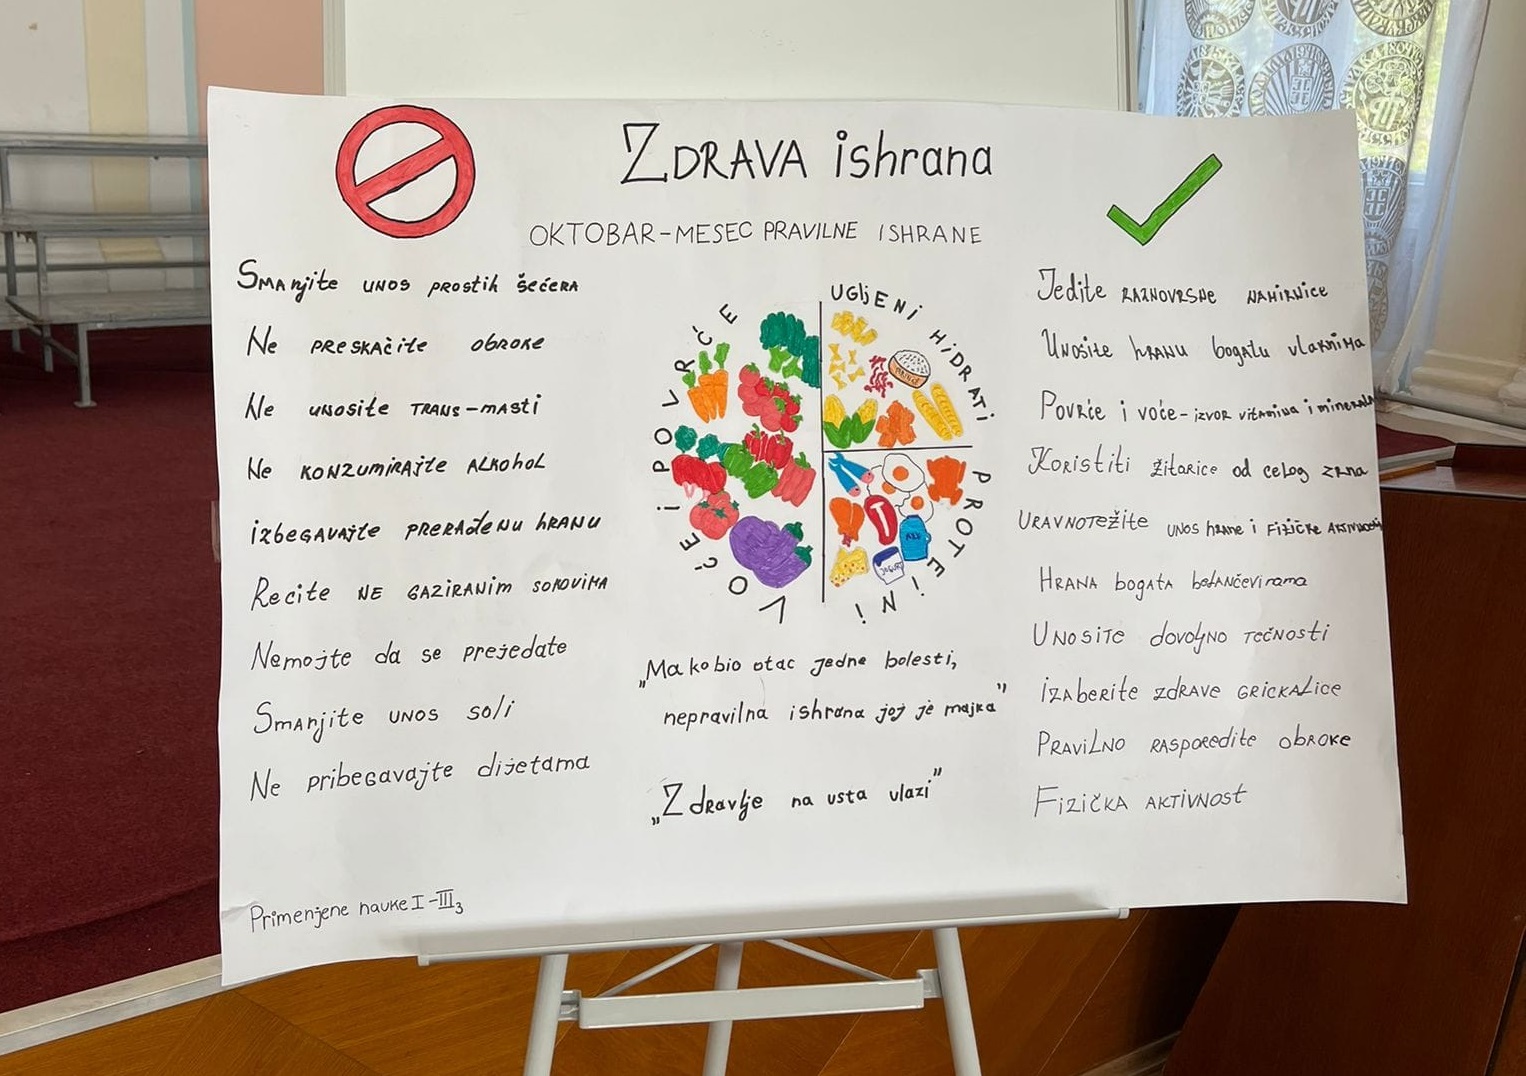 ZDRAVA ishrana
OKTOBAR-MESEC PRAVILNE ISHRANE
Smanjite unos prostih šećera
Ne preskačite obroke
Ne unosite trans-masti
Ne konzumirajte alkohol
izbegavajte prerađenu hranu
Recite NE gaziranim sokovima
Nemojte da se prejedate
Smanjite unos soli
Ne pribegavajte dijetama
Primenjene nauke I-III3
VOĆE i POVRĆE
UGljENi HiDRATi
PROTEiNi
JOGURT
„Ma ko bio otac jedne bolesti,
nepravilna ishrana joj je majka”
„Zdravlje na usta ulazi”
Jedite raznovrsne namirnice
Unosite hranu bogatu vlaknima
Povrće i voće-izvor vitamina i minerala
Koristiti žitarice od celog zrna
Uravnotežite unos hrane i fizičke aktivnosti
Hrana bogata balančevinama
Unosite dovoljno tečnosti
izaberite zdrave grickalice
Pravilno rasporedite obroke
Fizička aktivnost